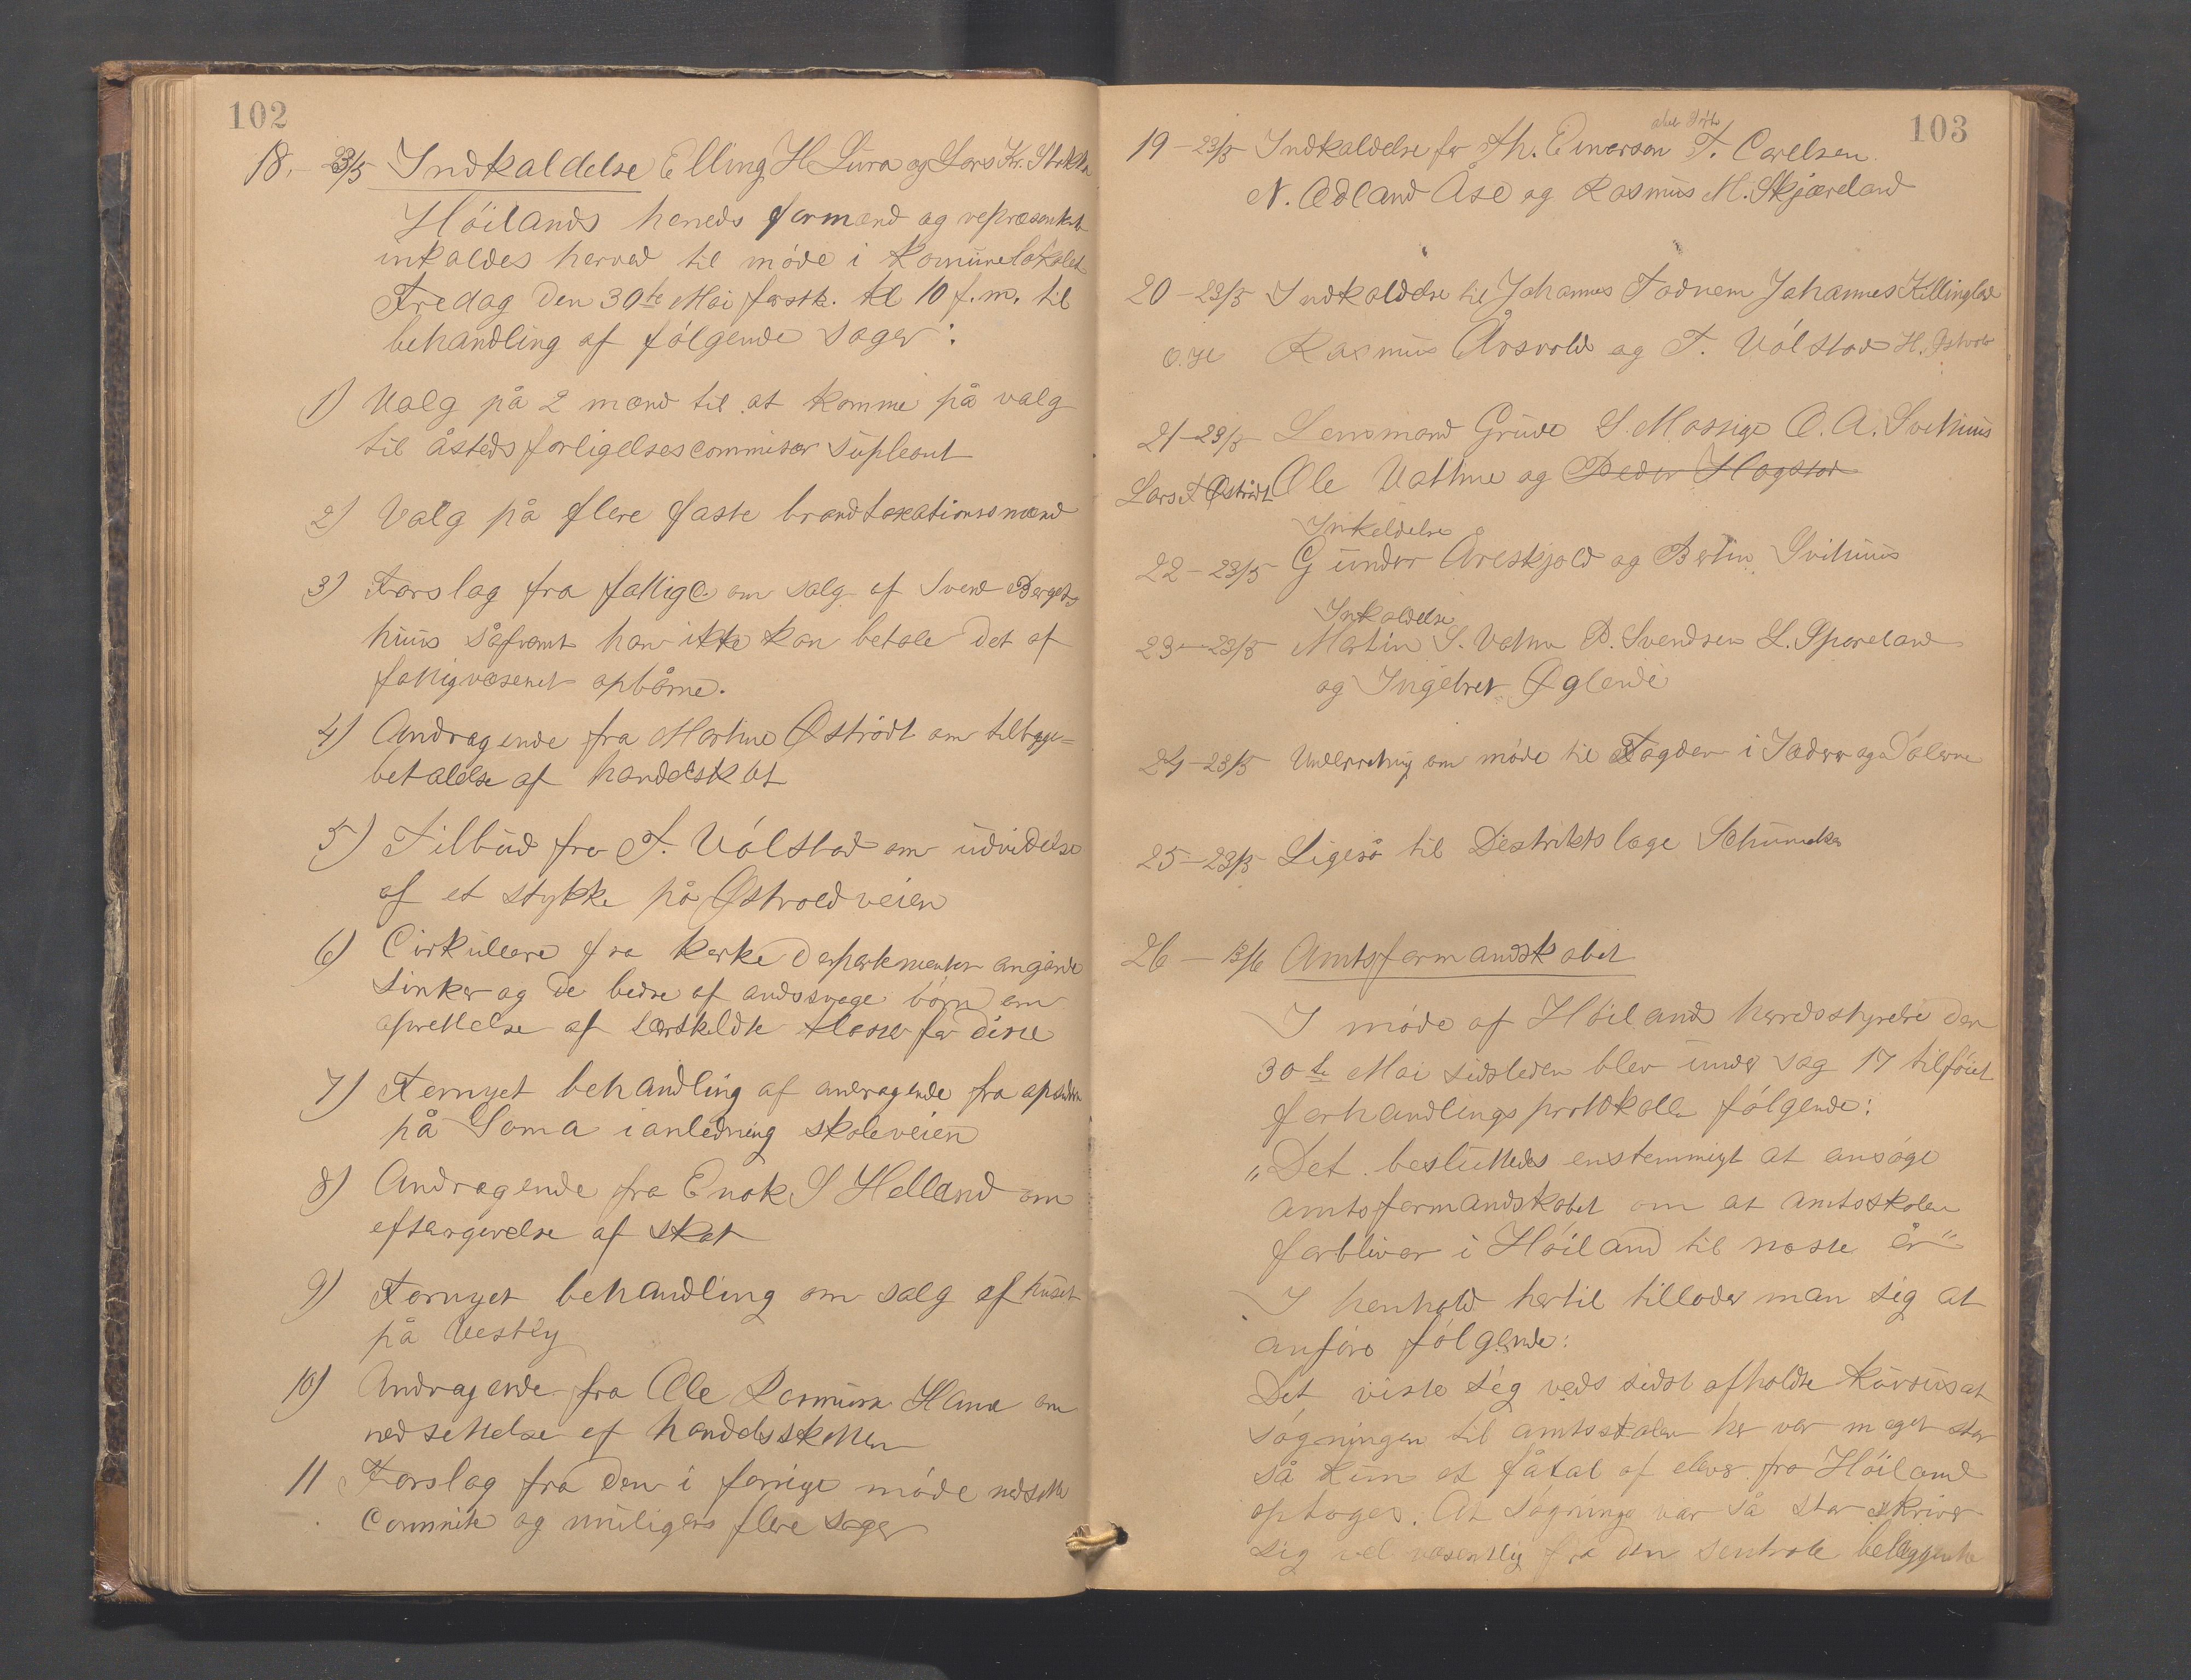 102
18. - 23/5 Indkaldelse Elling H Lura og Lars Kr.
Höilands herreds formænd og repræsentanter
inkaldes herved til möde i Komunelokalet
Fredag den 30te Mai förstk. kl 10 f.m. til
behandling af fölgende sager:
1) Valg på 2 mænd til at komme på valg
til åstedsforligelsescommisær supleant
2) Valg på flere faste brandtaxationsmænd
3) Forslag fra fattigc. om salg af Svend Berges
huus såfremt han ikke kan betale det af
fattigvæsenet opbårne.
4) Andragende fra Martine Öströdt om tilbage=
betaldse af handelskat
5) Tilbud fra T. Vólstad om udvidelse
af et stykke på Østvoldveien
6) Cirkulære fra kerke Departementet angående
sinker og de bedre af andssvage börn om
oprettelse af særskildte klasser for disse
7) Fornyet behandling af andragende fra opsiddere
på Soma i anledning skoleveien
8) Andragende fra Enok S Helland om
eftergivelse af skat
9) Fornyet behandling om salg af huset
på Vestly
10) Andragende fra Ole Rasmusn Hana om
nedsettelse af handelsskatten
11 Forslag fra den i forrige möde nedsatte
Commite og muligens flere sager
103
19 - 23/5 Indkaldelse for Th. Einarsen T. Carelsen
N. Ødland Åse og Rasmus M. Skjæreland
20 - 23/5 Indkaldelse til Johannes Todnem Johannes Killingland
Rasmus Årsvold og T. Vólstad H.
21 - 23/5 Lensmand Grude S. Massige O. A. Svihuus
Lars T Öströdt Ole Vatne og Peder Hogstad
Inkaldelse
22 - 23/5 Gunder Areskjold og Bertin Svihuus
Inkaldelse
23 - 23/5 Martin S. Vatne B. Svendsen L. Sporeland
og Ingebret Øglend
24 - 23/5 Underretning om möde til Fogden i Jæder og Dalerne
25 - 23/5 Ligeså til Distriktslæge Schumacker
26 - 13/6 Amtsformandskabet
I möde af Höilands herredsstyrelse den
30te Mai sidstleden blev under sag 17 tilföiet
forhandlingsprotokollen fölgende:
"Det besluttedes enstemmigt at ansöge
amtsformandskabet om at amtsskolen
forbliver i Höiland til næste år"
I henhold hertil tillader man sig at
anföre fölgende:
Det viste sig veds sidst afholdte kursus at
sögningen til amtsskolen her var meget stor
så kun et fåtal af elever fra Höiland
optoges. At sögninge var så stor skriver
sig vel væsentlig fra den sentrale beliggenhe